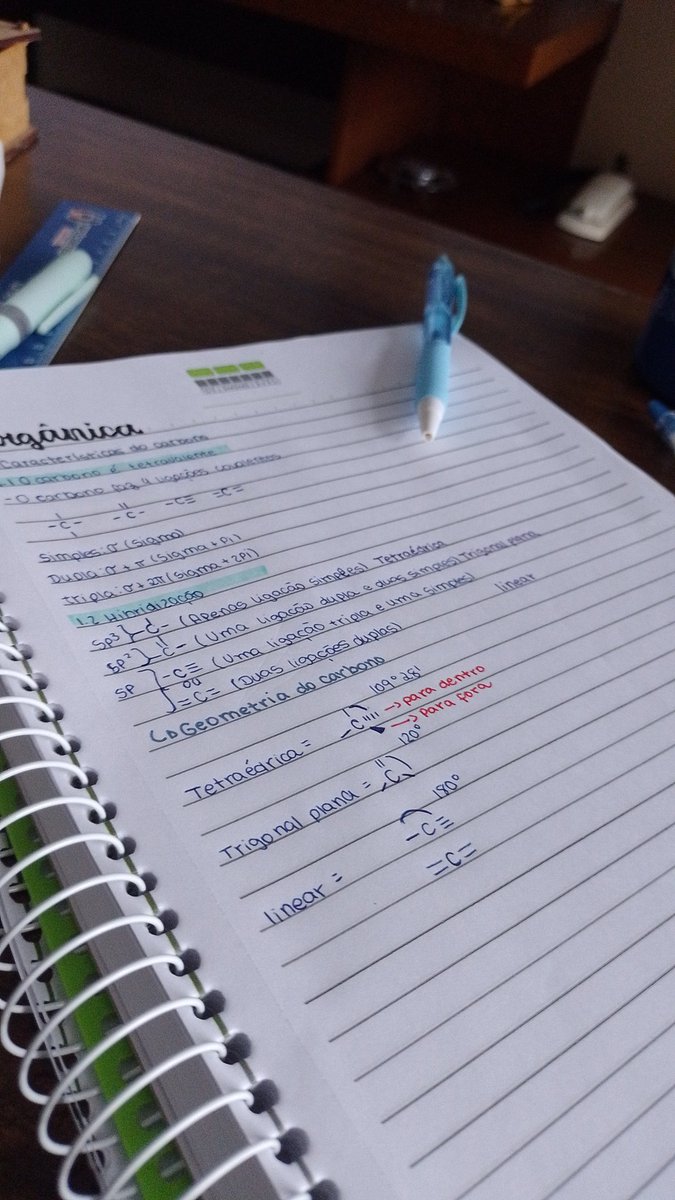 orgânica
Características do carbono
1.1 O carbono é tetravalente
- O carbono faz 4 ligações covalentes
-C- -C- -C≡ =C=
Simples: σ (sigma)
Dupla: σ + π (sigma + pi)
Tripla: σ + 2π (sigma + 2pi)
1.2 Hibridização
SP³ } -C- (Apenas ligação simples) Tetraédrica
SP² } -C- (Uma ligação dupla e duas simples) Trigonal plana
SP } -C≡ (Uma ligação tripla e uma simples) linear
=C= (Duas ligações duplas)
Geometria do carbono
109° 28'
Tetraédrica = C → para dentro
→ para fora
120°
Trigonal plana = C
180°
linear = -C≡
=C=